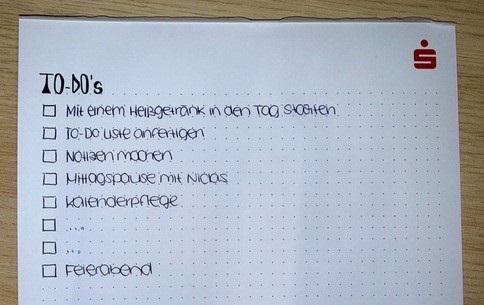 TO-DO's
Mit einem Heißgetränk in den Tag starten
TO-DO Liste anfertigen
Notizen machen
Mittagspause mit Niclas
Kalenderpflege
....
...
Feierabend